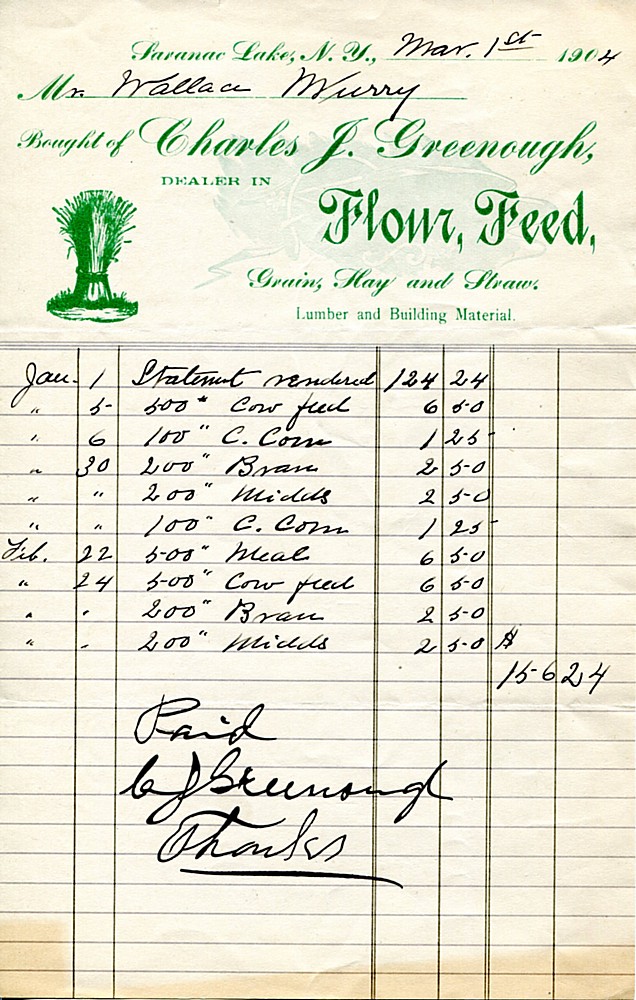 Saranac Lake, N. Y., Mar. 1st 1904
Mr. Wallace Murry
Bought of Charles J. Greenough,
DEALER IN
Flour, Feed,
Grain, Hay and Straw.
Lumber and Building Material.
Jan. 1 Statement rendered 124 24
" 5 500 " Cow feed 6 50
" 6 100 " C. Corn 1 25
" 30 200 " Bran 2 50
" " 200 " Midds 2 50
" " 100 " C. Corn 1 25
Feb. 22 500 " Meal 6 50
" 24 500 " Cow feed 6 50
" " 200 " Bran 2 50
" " 200 " Midds 2 50 $
156 24
Paid
C J Greenough
Thanks